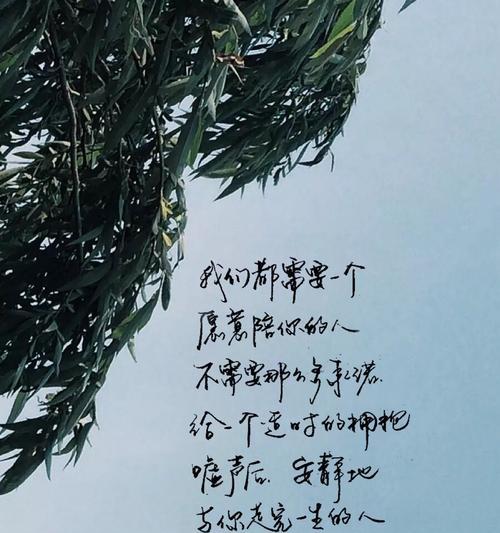 我们都需要一个
愿意陪你的人
不需要那么多承诺.
给一个适时的拥抱
嘘声后.安静地
与你走完一生的人